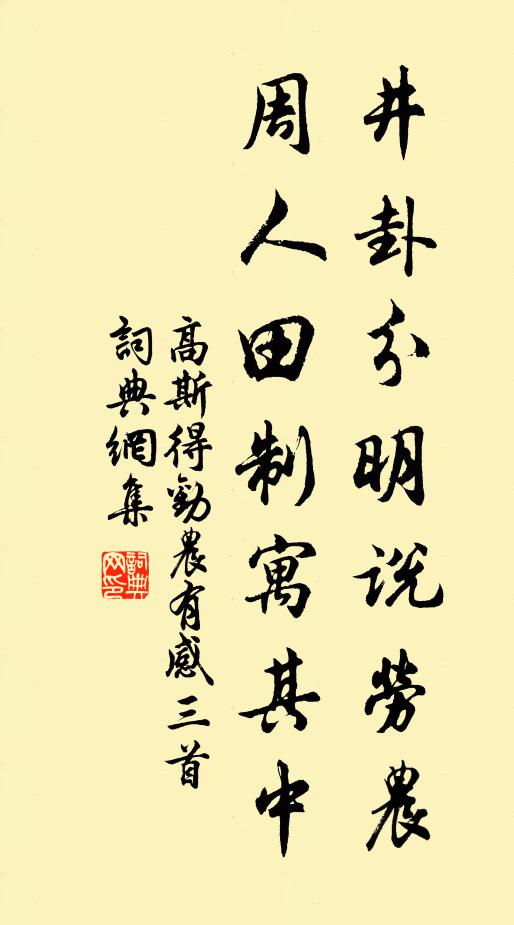 井卦分明説勞農
周人田制寓其中
高斯得勸農有感三首
詞典網集
詞典网印